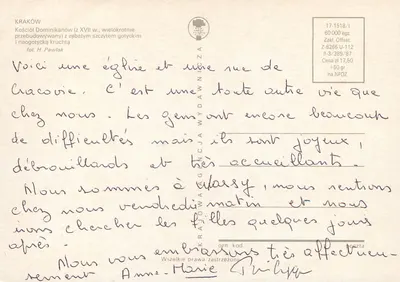 KRAKÓW
Kościół Dominikanów (z XVII w., wielokrotnie
przebudowywany) z ceglanym szczytem gotyckim
i neogotycką kruchtą
fot. H. Pawlak
17-1518/1
60 000 egz.
Zakł. Offset.
Cena zł 17,50
Voici une église et une rue de
Cracovie. C'est une toute autre vie que
chez nous. Les gens ont encore beaucoup
de difficultés mais ils sont joyeux,
débrouillards et très accueillants.
Nous sommes à Massy, nous rentrons
chez nous vendredi matin et nous
irons chercher les filles quelques jours
après.
Nous vous embrassons très affectueu-
sement Anne-Marie Philippe
KRAJOWA AGENCJA WYDAWNICZA
Wszelkie prawa zastrzeżone